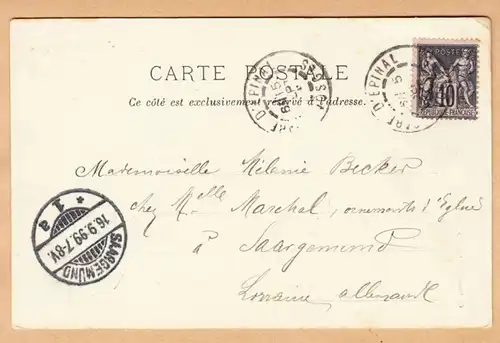 CARTE POSTALE
Ce côté est exclusivement réservé à l'adresse.
D'EPINAL
D'EPINAL
POSTE
10
REPUBLIQUE FRANCAISE
Mademoiselle Mélanie Becker
chez Melle Marchal, ornements d'Eglise
à Saargemund
Lorraine allemande
SAARGEMÜND
16.9.99.7-8V.
* 1 a